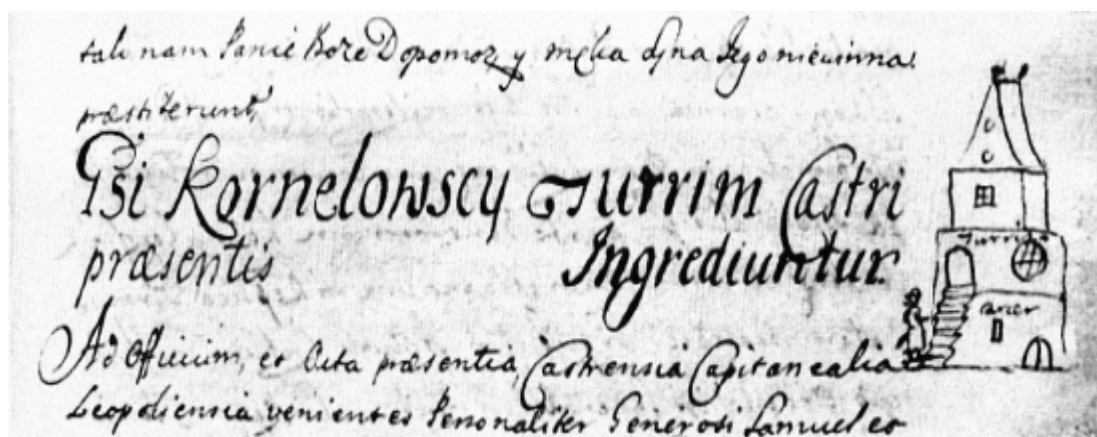 tak nam Panie Boże Dopomoz, y męka
præstiterunt,
Gsi Kornelowscy Turrim Castri
præsentis Ingrediuntur.
Turris
carcer
Ad Officium, et Acta præsentia, Castrensia Capitanealia
Leopoliensia venientes Personaliter Generosi Samuel et